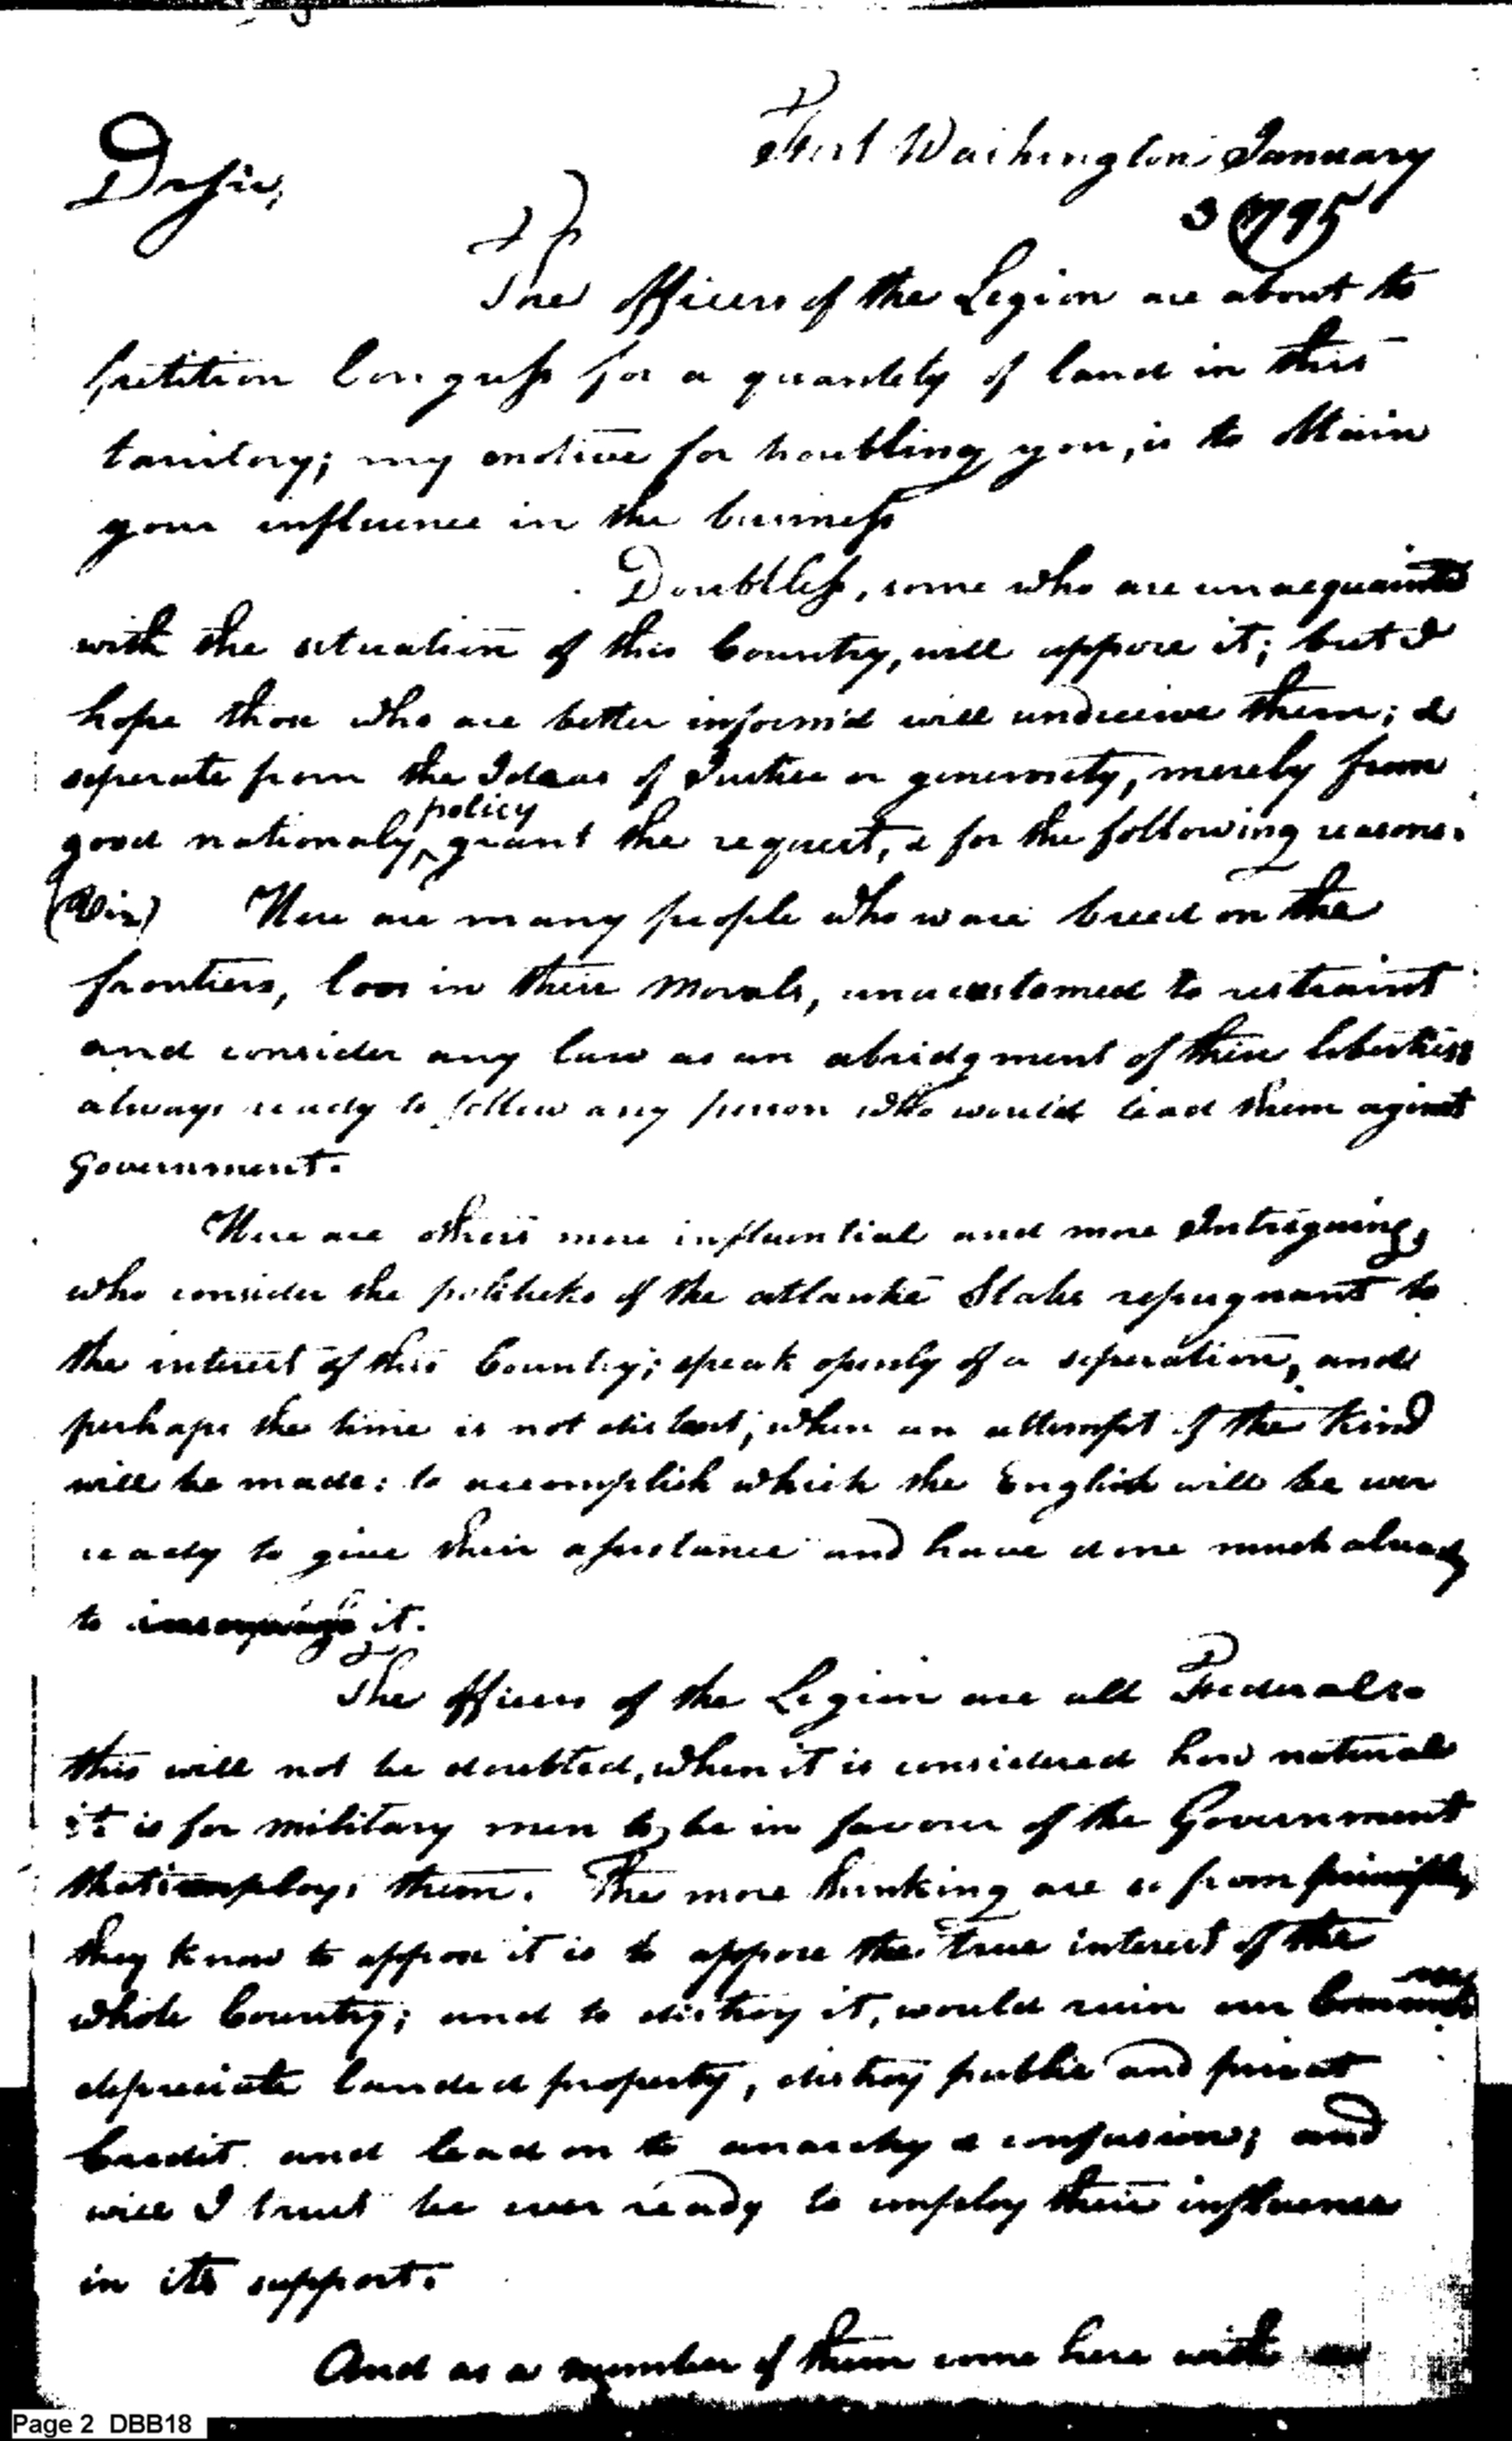 Fort Washington January
3 1795
Dr Sir,
The officers of the Legion are about to
petition Congress for a quantity of land in this
territory; my motive for troubling you, is to obtain
your influence in the business
Doubtless, some who are unacquainted
with the situation of this Country, will oppose it; but I
hope those who are better inform'd will undeceive them; &
seperate from the Ideas of Justice or generosity, merely from
good nationaly policy grant the request, & for the following reasons.
(Viz) Here are many people who ware breed on the
frontiers, loos in their Morals, unacustomed to restraint
and consider any law as an abridgment of their liberties
always ready to follow any person who would lead them aginst
Government.
Here are others more influential and more Intriguing,
who consider the politicks of the atlantic States repugnant to
the interest of this Country; speak openly of a seperation, and
perhaps the time is not distant, when an attempt of the kind
will be made: to accomplish which the English will be ever
ready to give their assistance and have done much already
to it.
The officers of the Legion are all Federals
this will not be doubted, when it is considered how natural
it is for military men to be in favour of the Government
that imploys them. The more thinking are so from principle,
they know to oppose it is to oppose the true interest of the
whole Country; and to distroy it, would ruin our
depreciate landed property, distroy public and privat
Credit and lead on to anarchy & confusion; and
will I trust be ever ready to imploy their influence
in its support.
And as a number of them come here with
Page 2 DBB18